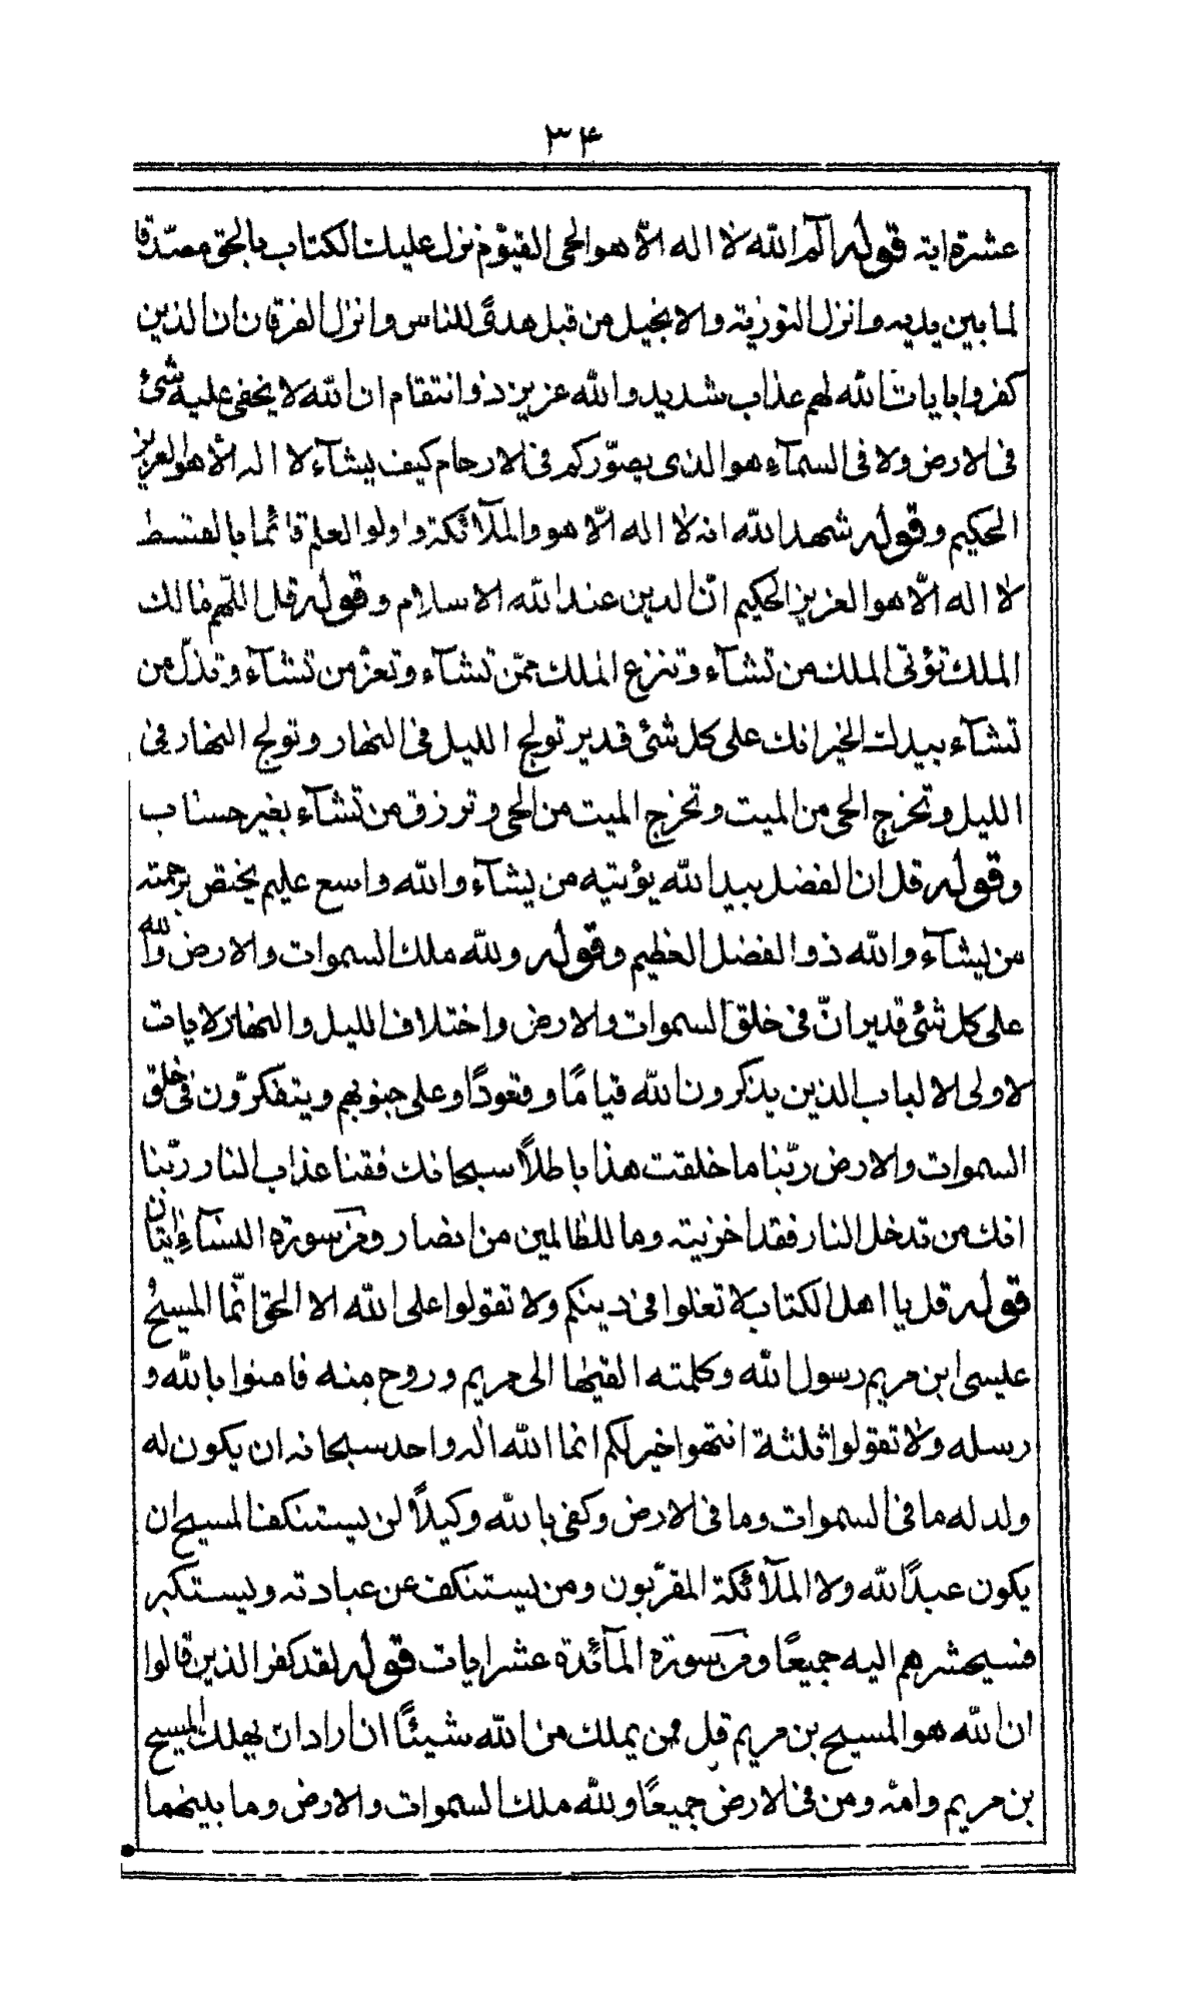 ٣۴
عشرة اية قوله الٓم الله لا اله الّا هو الحى القيّوم نزل عليك الكتاب بالحق مصدّقا
لما بين يديه وانزل التورية والانجيل من قبل هدىً للناس وانزل الفرقان ان الذين
كفروا بايات الله لهم عذاب شديد والله عزيز ذو انتقام ان الله لا يخفى عليه شئ
فى الارض ولا فى السمآء هو الذى يصوّركم فى الارحام كيف يشآء لا اله الّا هو العزيز
الحكيم وقوله شهد الله انه لا اله الّا هو والملآئكة واولوا العلم قائمًا بالقسط
لا اله الّا هو العزيز الحكيم انّ الدين عند الله الاسلام وقوله قل اللّهم مالك
الملك تؤتى الملك من تشآء وتنزع الملك ممّن تشآء وتعزّ من تشآء وتذلّ من
تشآء بيدك الخير انك على كل شئ قدير تولج الليل فى النهار وتولج النهار فى
الليل وتخرج الحى من الميت وتخرج الميت من الحى وترزق من تشآء بغير حساب
وقوله قل ان الفضل بيد الله يؤتيه من يشآء والله واسع عليم يختص برحمته
من يشآء والله ذو الفضل العظيم وقوله ولله ملك السموات والارض والله
على كل شئ قدير انّ فى خلق السموات والارض واختلاف الليل والنهار لايات
لاولى الالباب الذين يذكرون الله قيامًا وقعودًا وعلى جنوبهم ويتفكرّون فى خلق
السموات والارض ربّنا ما خلقت هذا باطلاً سبحانك فقنا عذاب النار ربّنا
انك من تدخل النار فقد اخزيته وما للظالمين من انصار ومن سورة النسآء ايتان
قوله قل يا اهل الكتاب لا تغلوا فى دينكم ولا تقولوا على الله الا الحق انّما المسيحُ
عليسى ابن مريم رسول الله وكلمته القيٰها الى مريم وروح منه فامنوا بالله و
رسله ولا تقولوا ثلثة انتهوا خير لكم انما الله اله واحد سبحانه ان يكون له
ولد له ما فى السموات وما فى الارض وكفى بالله وكيلاً لن يستنكف المسيح ان
يكون عبدًا لله ولا الملآئكة المقرّبون ومن يستنكف عن عبادته ويستكبر
فسيحشرهم اليه جميعًا ومن سورة المآئدة عشر ايات قوله لقد كفر الذين قالوا
ان الله هو المسيح بن مريم قل فمن يملك من الله شيئًا ان اراد ان يهلك المسيح
بن مريم وامّه ومن فى الارض جميعًا ولله ملك السموات والارض وما بينهما